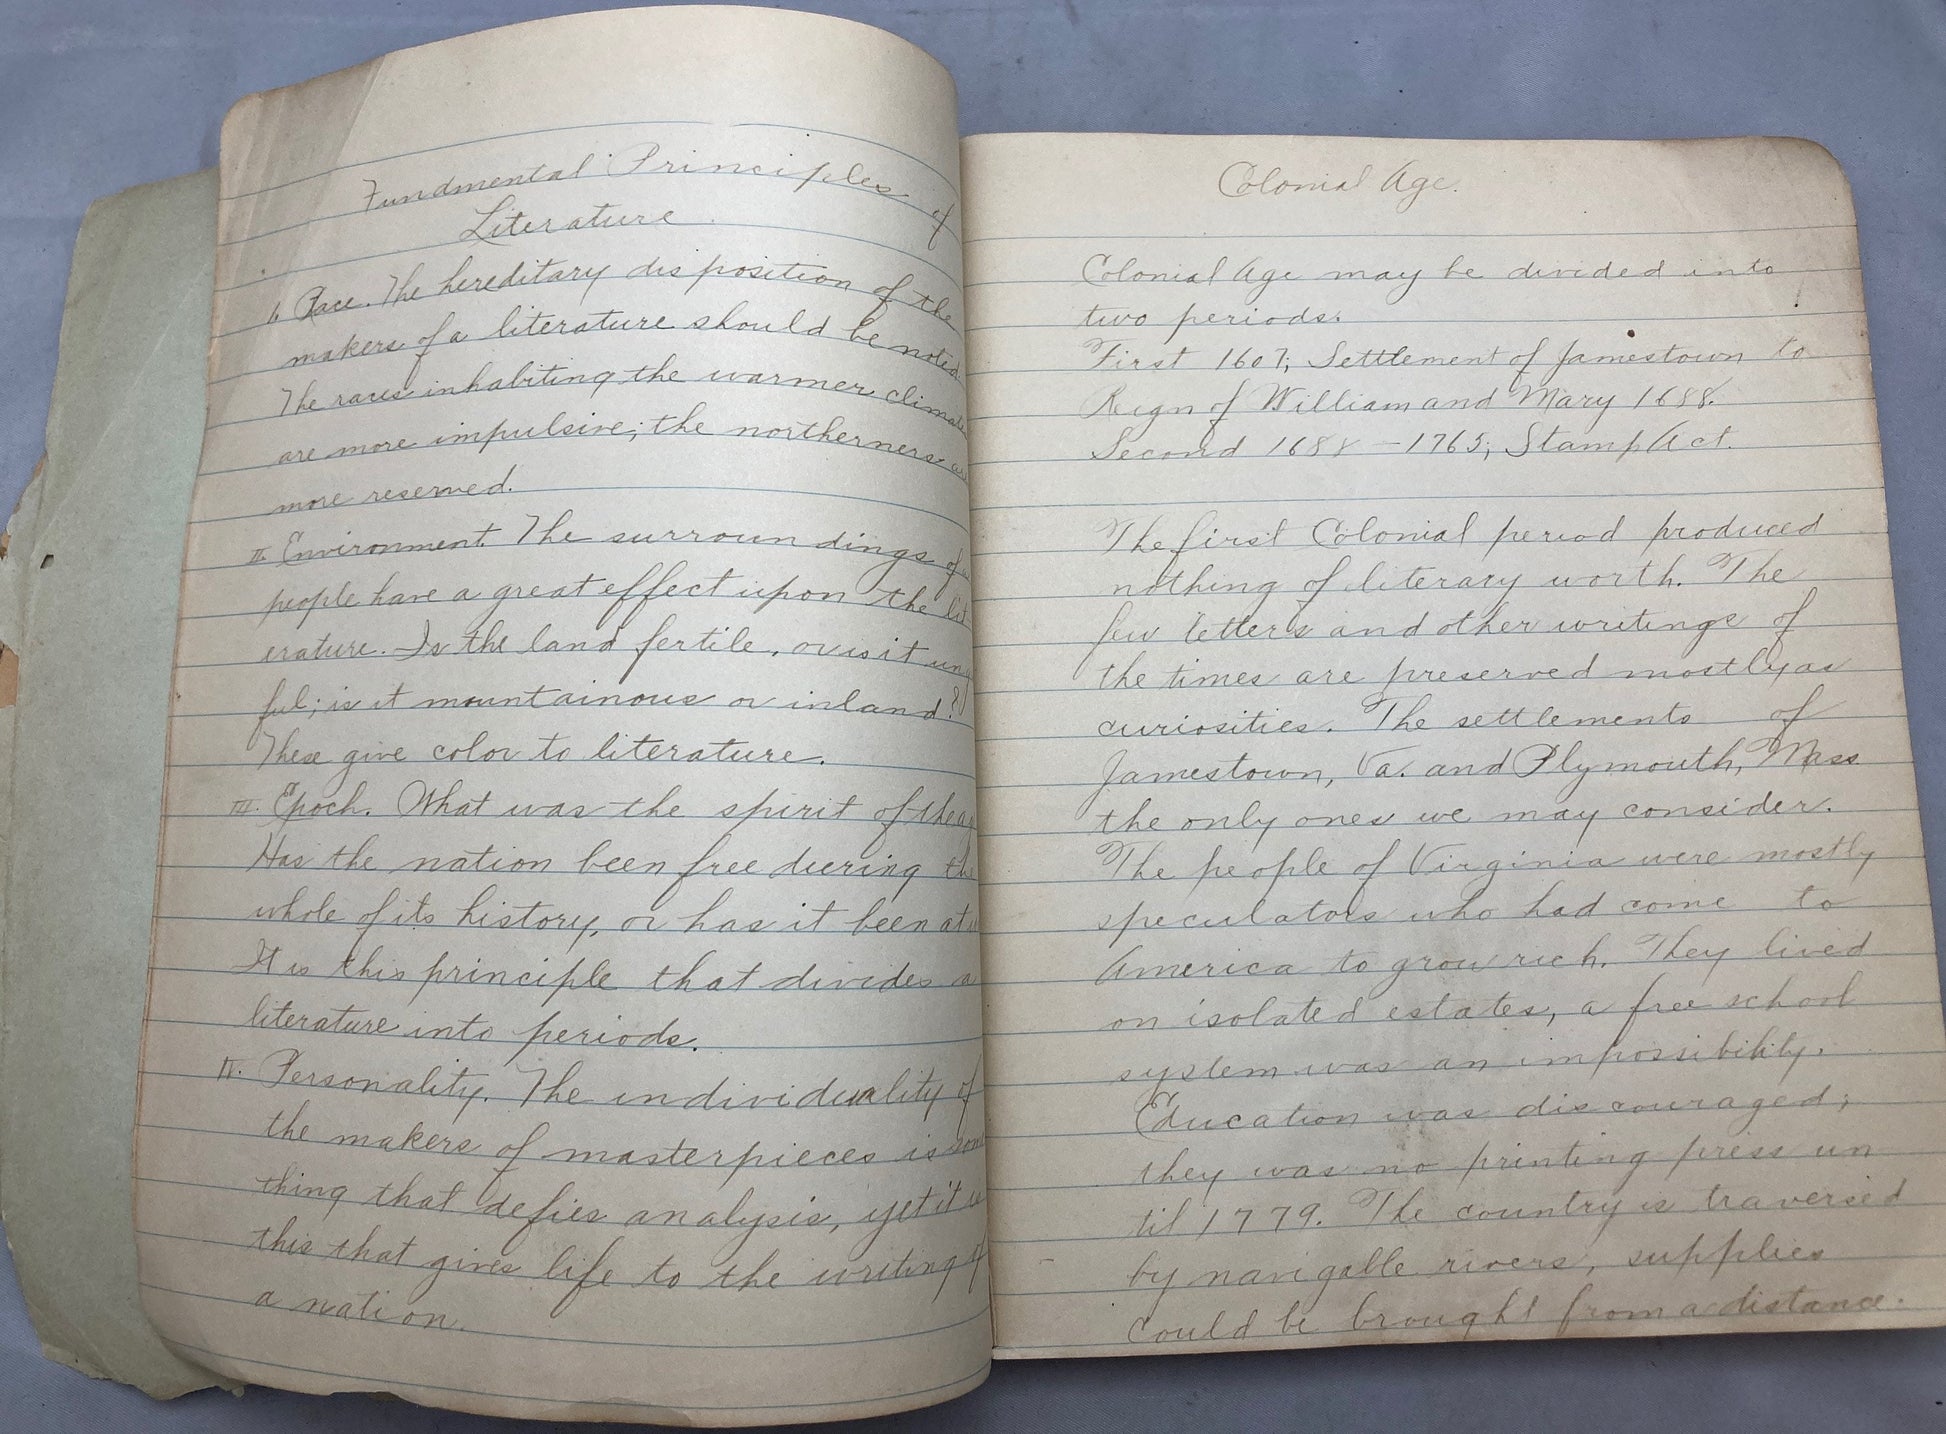 Fundmental Principles of
Literature
I. Race. The hereditary disposition of the
makers of a literature should be noted.
The races inhabiting the warmer climates
are more impulsive; the northerners
more reserved.
II. Environment. The surroundings of
people have a great effect upon the lit-
erature. Is the land fertile, or is it
ful; is it mountainous or inland?
These give color to literature.
III. Epoch. What was the spirit of the
Has the nation been free during the
whole of its history, or has it been at
It is this principle that divides a
literature into periods.
IV. Personality. The individuality of
the makers of masterpieces is some
thing that defies analysis, yet it is
this that gives life to the writing of
a nation.
Colonial Age.
Colonial Age may be divided into
two periods.
First 1607; Settlement of Jamestown to
Reign of William and Mary 1688.
Second 1688-1765; Stamp Act.
The first Colonial period produced
nothing of literary worth. The
few letters and other writings of
the times are preserved mostly as
curiosities. The settlements of
Jamestown, Va. and Plymouth, Mass
the only ones we may consider.
The people of Virginia were mostly
speculators who had come to
America to grow rich. They lived
on isolated estates, a free school
system was an impossibility.
Education was discouraged;
they was no printing press un
til 1779. The country is traversed
by navigable rivers, supplies
could be brought from a distance.